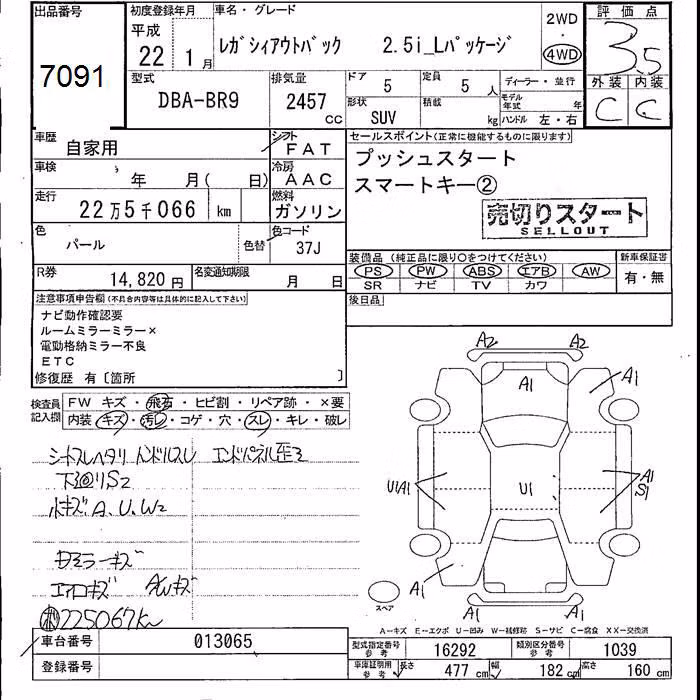 出品番号 初度登録年月 車名・グレード 2WD 評価点
7091 平成 22 1月 レガシィアウトバック 2.5i_Lパッケージ ・ 4WD 3.5
型式 排気量 ドア 5 定員 5人 ディーラー・並行 外装 内装
DBA-BR9 2457cc 形状 SUV 積載 kg モデル年式 年 C C
ハンドル 左・右
車歴 自家用 シフト FAT セールスポイント(正常に機能するものに限ります)
車検 年 月( 日) 冷房 AAC プッシュスタート
走行 22万5千066 km 燃料 ガソリン スマートキー②
売切りスタート
SELLOUT
色 パール 色替 色コード 37J
装備品(純正品に限り○をつけてください) 新車保証書
PS PW ABS エアB AW 有・無
SR ナビ TV カワ
R券 14,820円 名変通知期限 月 日 後日品
注意事項申告欄(不具合内容等は具体的に記入して下さい)
ナビ動作確認要
ルームミラーミラー×
電動格納ミラー不良
ETC
修復歴 有〔箇所 〕
検査員記入欄 FW キズ・飛石・ヒビ割・リペア跡・×要
内装 キズ・汚レ・コゲ・穴・スレ・キレ・破レ
シートスレヘタリ ハンドルスレ エンドパネル歪ミ
下回リS2
小キズ.A.U.W2
ミラーキズ
エアロキズ AWキズ
225067km
A2 A2
A1 A1
U1A1 U1 A1
S1
A1
A1 A1
スペア
A―キズ E―エクボ U―凹み W―補修跡 S―サビ C―腐食 XX―交換済
車台番号 013065 型式指定番号 参考 16292 類別区分番号 参考 1039
登録番号 車庫証明用 参考 長さ 477cm 幅 182cm 高さ 160cm